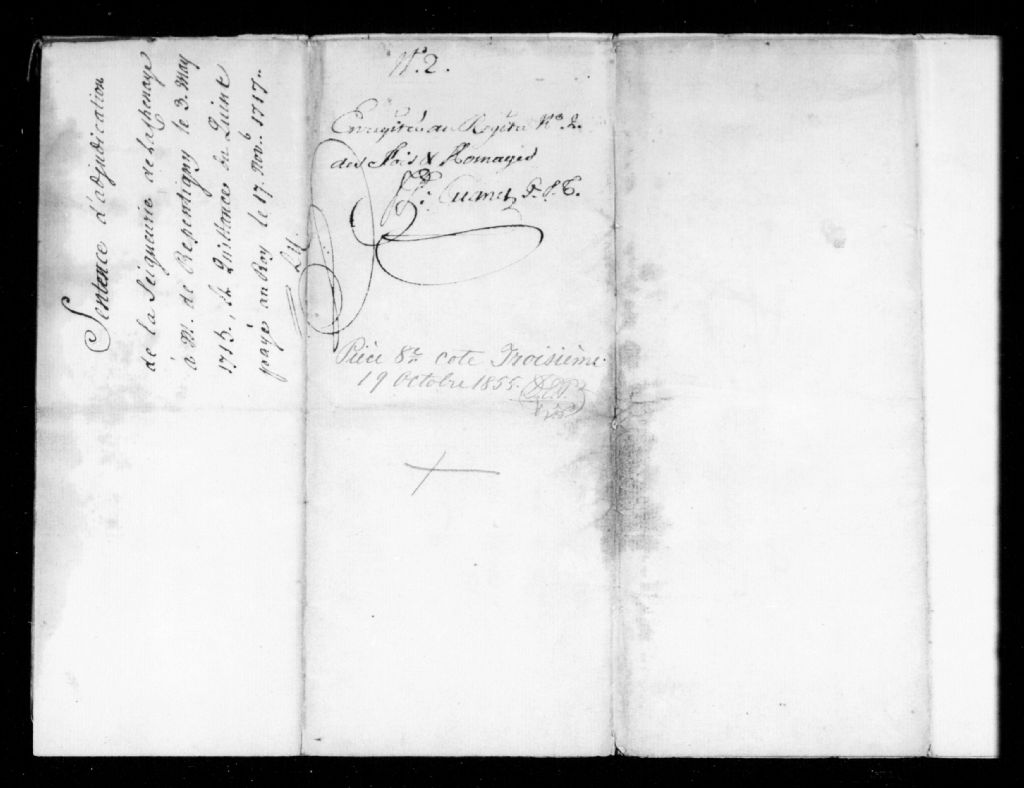 Sentence d'adjudication
de la Seigneurie de Lachenaye
à M. de Repentigny le 3. May
1715., et Quittance du Quint
payé au Roy le 17. Nov.b 1717..
N.o 2.
Enregistré au Registre N.o 2.
des Fois & Homages
Cugnet
Pièce 8.e cote Troisième.
19 Octobre 1855.